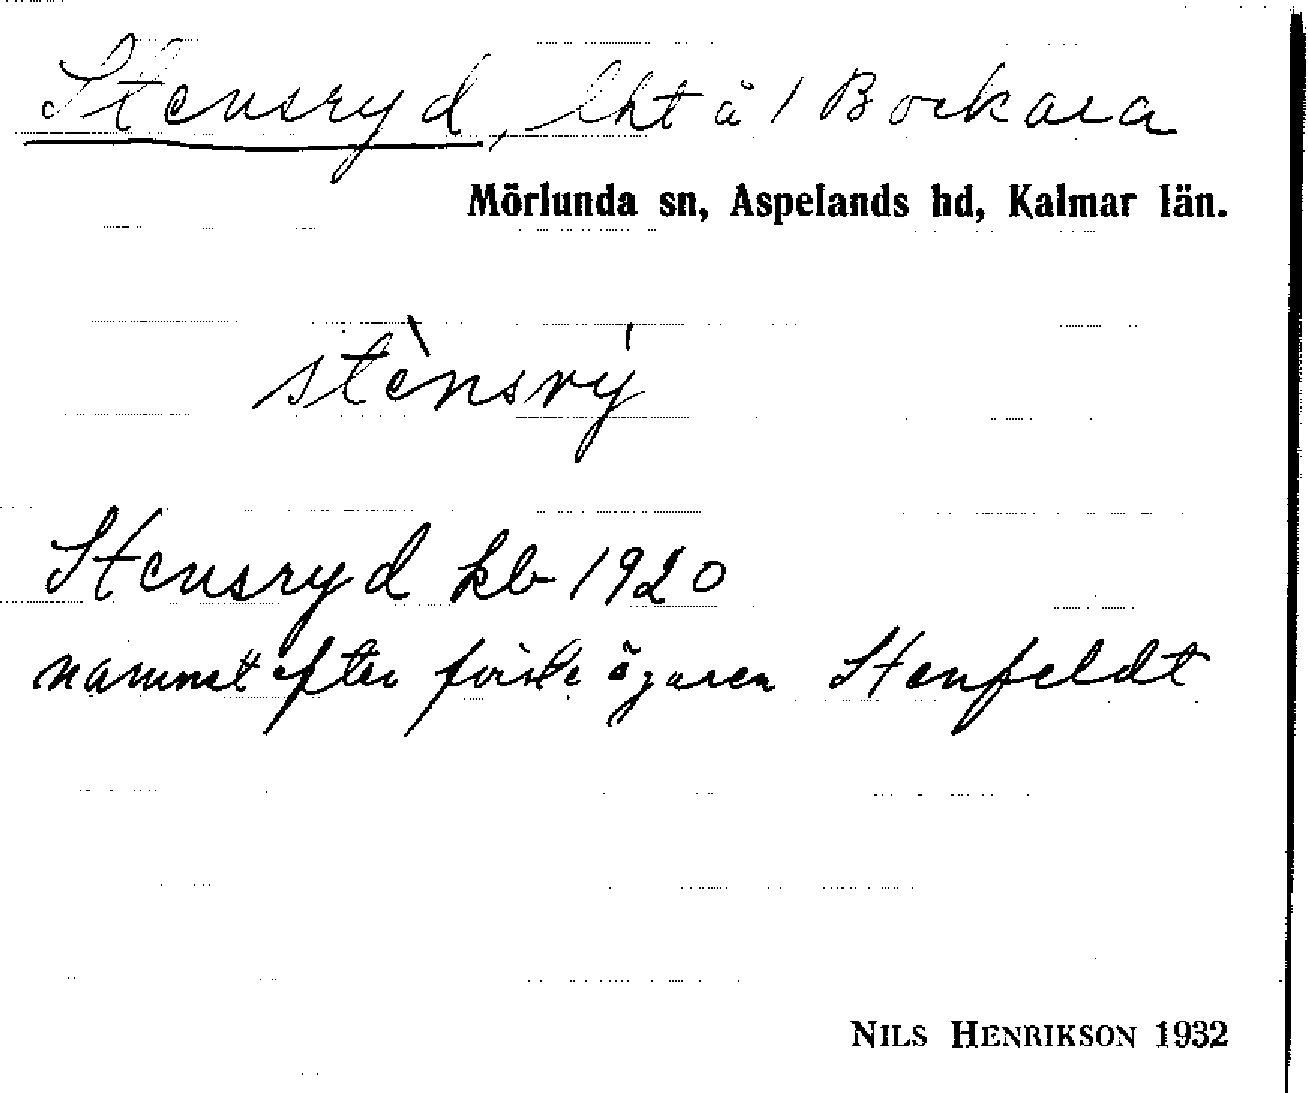 Stensryd, lht å 1 Bockara
Mörlunda sn, Aspelands hd, Kalmar län.
stènsrý
Stensryd kb 1920
namnet efter förste ägaren Stenfeldt
NILS HENRIKSON 1932